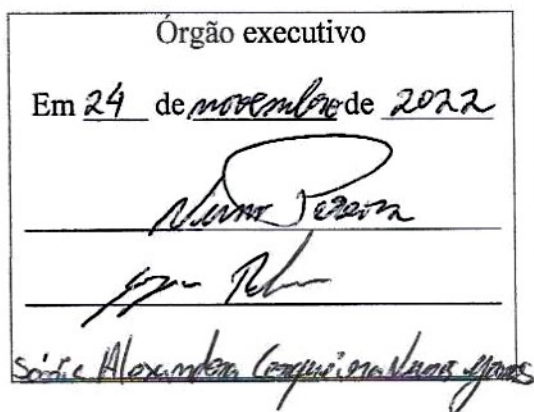 Órgão executivo
Em 24 de novembro de 2022
Nuno Pereira
Alexandra Cerqueira Nunes Gomes